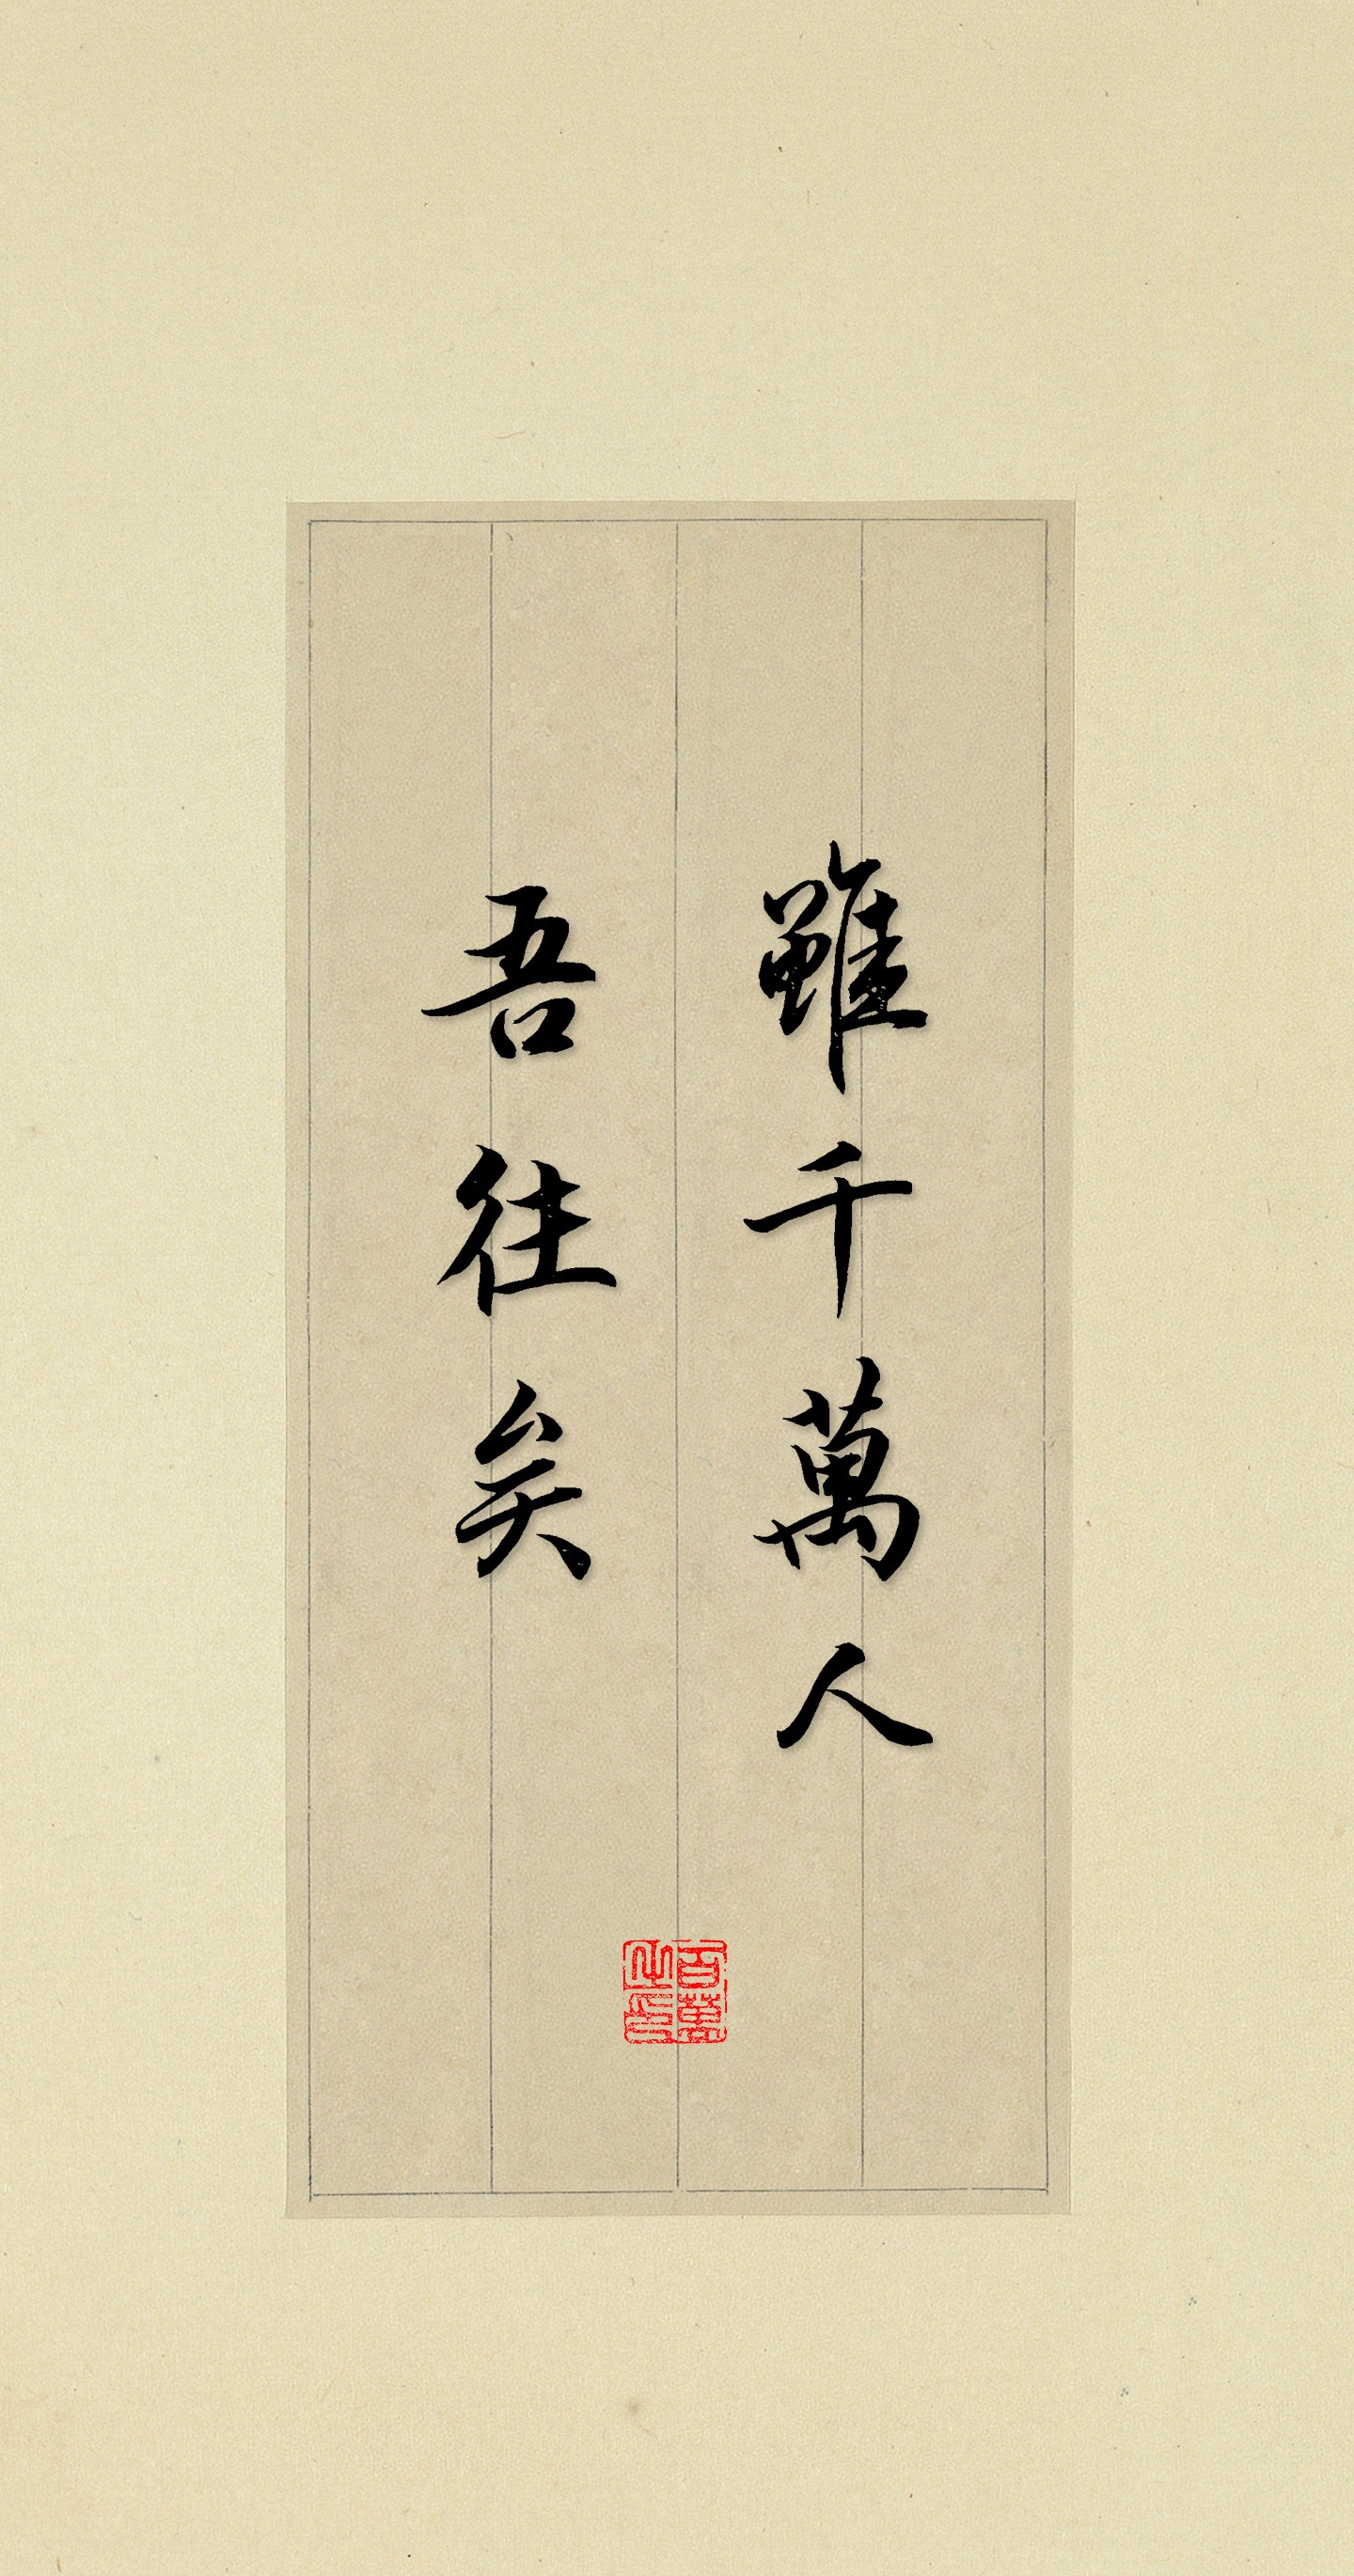 雖千萬人
吾往矣